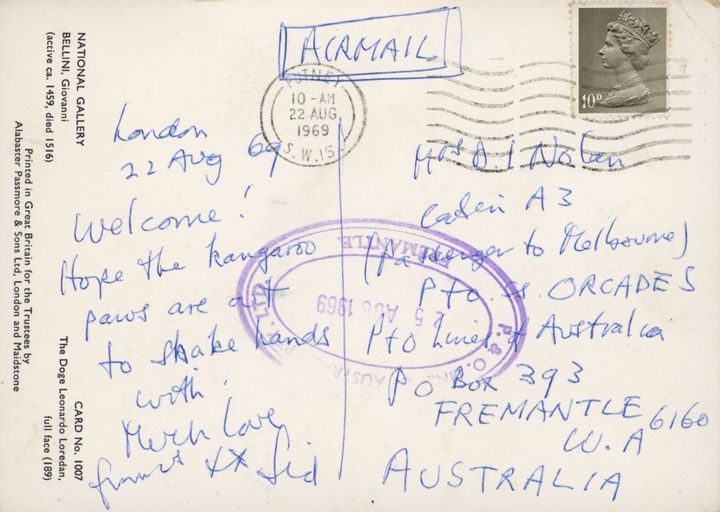 AIRMAIL
PUTNEY
10-AM
22 AUG
1969
S.W.15.
10D
London
22 Aug 69
Welcome!
Hope the kangaroo
paws are out
to shake hands
with!
Much love
xx Sid
Mrs D. I Nolan
Cabin A3
(Passenger to Melbourne)
P&O SS. ORCADES
P&O Lines of Australia
PO Box 393
FREMANTLE 6160
W.A
AUSTRALIA
P. & O.
AUG 1969
FREMANTLE.
NATIONAL GALLERY
BELLINI, Giovanni
(active ca. 1459, died 1516)
CARD No. 1007
The Doge Leonardo Loredan,
full face (189)
Printed in Great Britain for the Trustees by
Alabaster Passmore & Sons Ltd, London and Maidstone